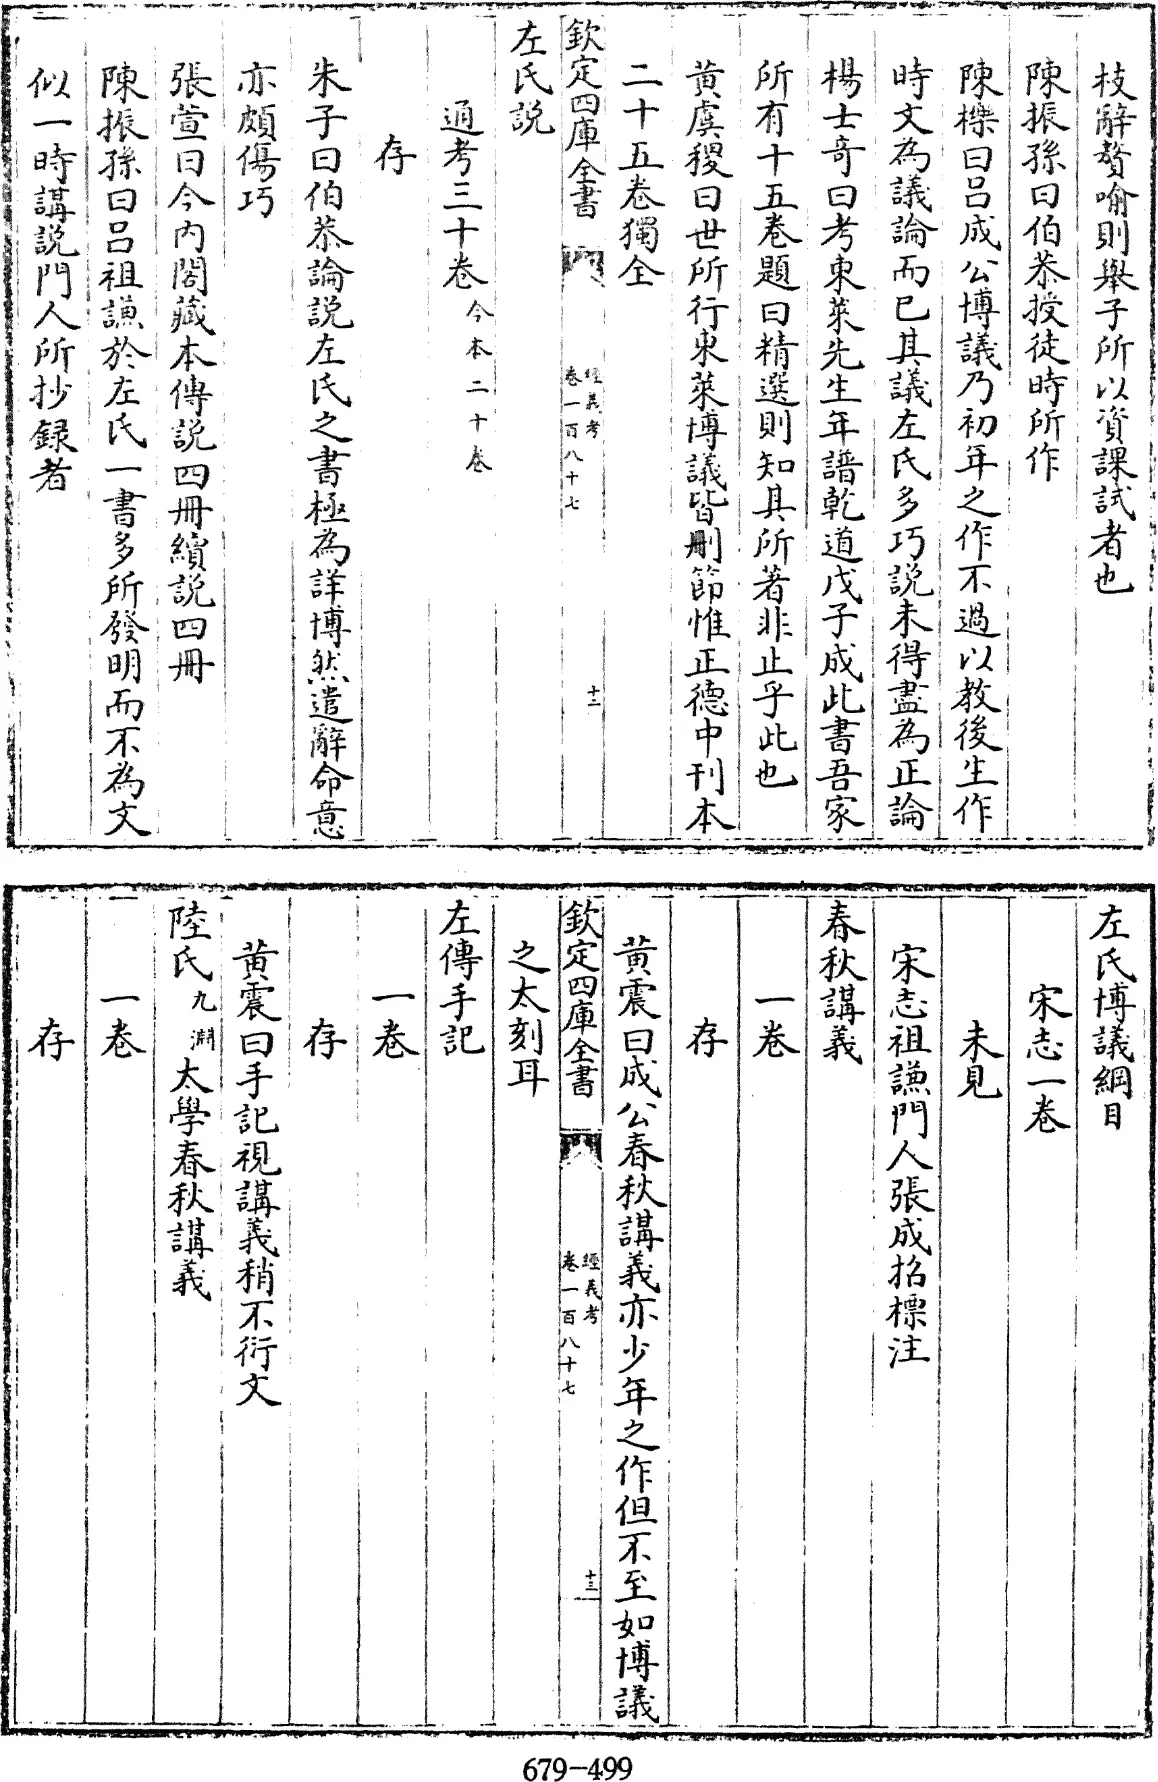 枝辭贅喻則舉子所以資課試者也
陳振孫曰伯恭授徒時所作
陳櫟曰呂成公博議乃初年之作不過以教後生作
時文為議論而已其議左氏多巧説未得盡為正論
楊士奇曰考東萊先生年譜乾道戊子成此書吾家
所有十五卷題曰精選則知其所著非止乎此也
黄虞稷曰世所行東萊博議皆刪節惟正德中刊本
二十五卷獨全
欽定四庫全書
經義考
卷一百八十七
十二
左氏説
通考三十卷今本二十卷
存
朱子曰伯恭論説左氏之書極為詳博然遣辭命意
亦頗傷巧
張萱曰今内閣藏本傳説四冊續説四冊
陳振孫曰呂祖謙於左氏一書多所發明而不為文
似一時講説門人所抄録者
左氏博議綱目
宋志一卷
未見
宋志祖謙門人張成招標注
春秋講義
一卷
存
黄震曰成公春秋講義亦少年之作但不至如博議
欽定四庫全書
經義考
卷一百八十七
十三
之太刻耳
左傳手記
一卷
存
黄震曰手記視講義稍不衍文
陸氏九淵太學春秋講義
一卷
存
679-499